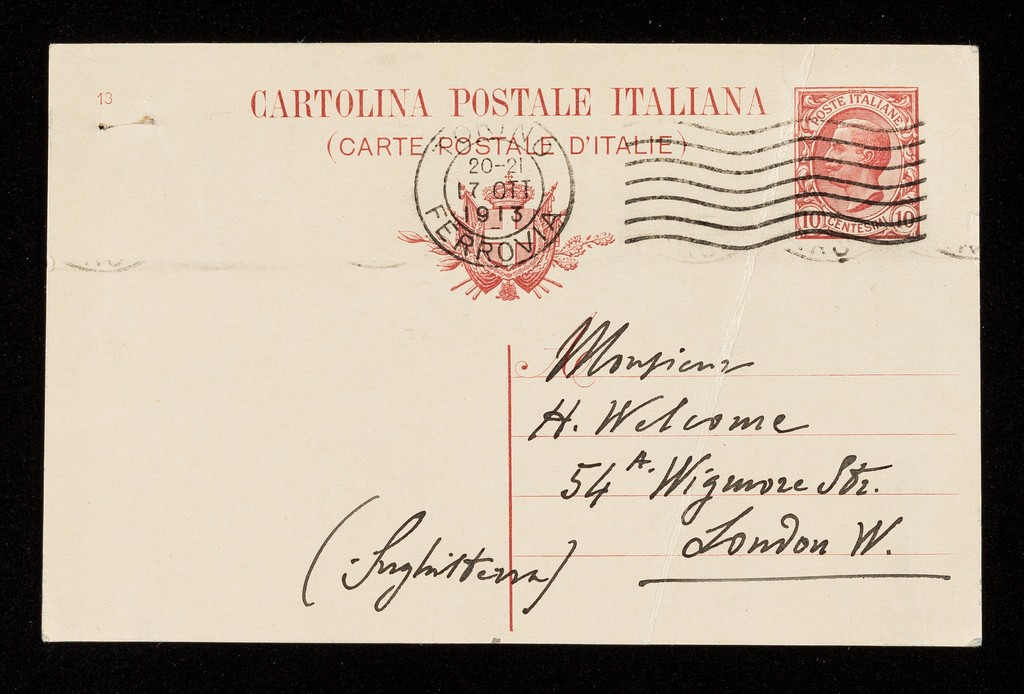 13
CARTOLINA POSTALE ITALIANA
(CARTE POSTALE D'ITALIE)
POSTE ITALIANE
10 CENTESIMI 10
TORINO
20-21
17 OTT
1913
FERROVIA
Monsieur
H. Welcome
54 A. Wigmore Str.
London W.
(Inghilterra)